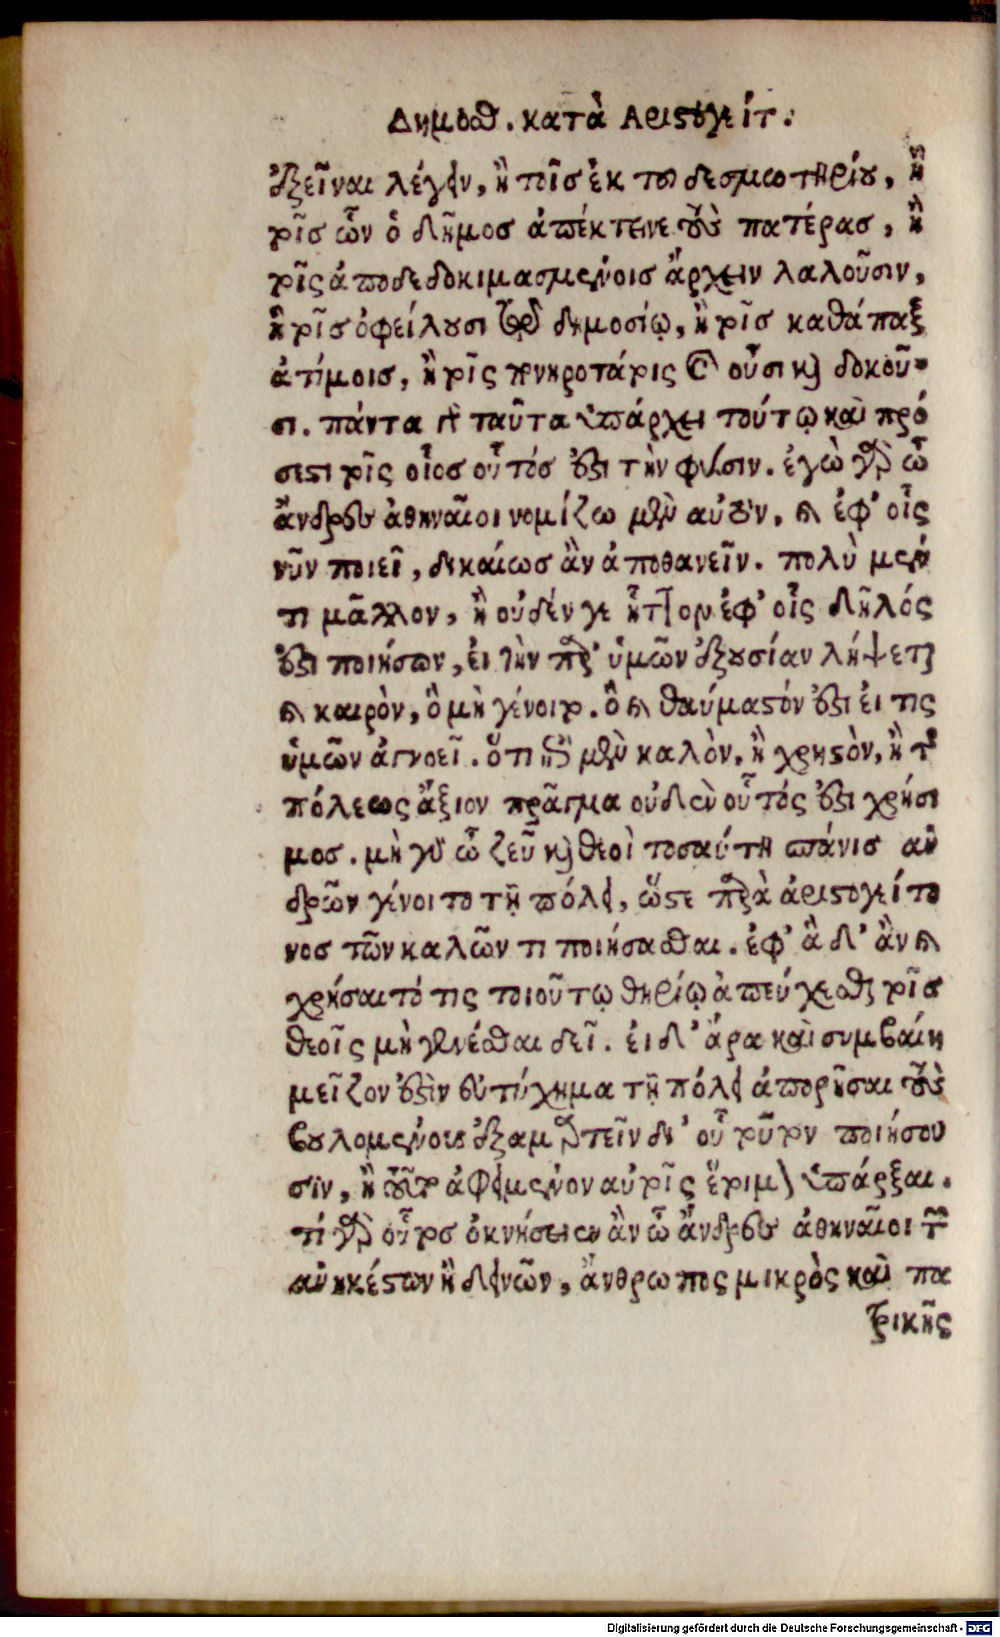 Δημοσθ. κατὰ Αριστογείτ.
ἐξεῖναι λέγειν, ἢ τοῖσ ἐκ του δεσμωτηρίου, ἢ
τοῖσ ὧν ὁ δῆμοσ ἀπέκτεινε τοὺς πατέρας, ἢ
τοῖς ἀποδεδοκιμασμένοισ ἄρχειν λαλοῦσιν,
ἢ τοῖσ ὀφείλουσι τῷ δημοσίῳ, ἢ τοῖσ καθάπαξ
ἀτίμοισ, ἢ τοῖς πονηροτάτοις καὶ οὖσι καὶ δοκοῦ-
σι. πάντα δὲ ταῦτα ὑπάρχει τούτῳ καὶ πρό
σεστι τοῖς οἷοσ οὗτόσ ἐστι τὴν φύσιν. ἐγὼ γὰρ ὦ
ἄνδρες ἀθηναῖοι νομίζω μὲν αὐτὸν, καὶ ἐφ' οἷς
νῦν ποιεῖ, δικαίωσ ἂν ἀποθανεῖν. πολὺ μέν
τι μᾶλλον, ἢ οὐδέν γε ἧττον ἐφ' οἷς δῆλός
ἐστι ποιήσων, εἰ τὴν παρ' ὑμῶν ἐξουσίαν λήψεται
καὶ καιρὸν, ὃ μὴ γένοιτο. ὃ καὶ θαύμαστόν ἐστι εἰ τις
ὑμῶν ἀγνοεῖ. ὅτι ἐπὶ μὲν καλὸν, ἢ χρηστὸν, ἢ τῆς
πόλεως ἄξιον πρᾶγμα οὐδὲν οὗτός ἐστι χρήσι
μοσ. μὴ γὰρ ὦ ζεῦ καὶ θεοὶ τοσαύτη σπάνισ ἀν
δρῶν γένοιτο τῇ πόλει, ὥστε παρὰ ἀριστογείτο
νοσ τῶν καλῶν τι ποιήσασθαι. ἐφ' ἃ δ' ἂν καὶ
χρήσαιτό τις τοιούτῳ θηρίῳ ἀπεύχεσθαι τοῖσ
θεοῖς μὴ γενέσθαι δεῖ. εἰ δ' ἄρα καὶ συμβαίη
μεῖζον ἐστὶν εὐτύχημα τῇ πόλει ἀπορῆσαι τοὺς
βουλομένους ἐξαμαρτεῖν δι' οὗ τοῦτον ποιήσου
σιν, ἢ τοῦτο ἀφειμένον αὐτοῖς ἕτοιμον ὑπάρξαι.
τί γὰρ οὗτοσ ὀκνήσειεν ἂν ὦ ἄνδρες ἀθηναῖοι τῶν
ἀνηκέστων ἢ δεινῶν, ἄνθρωπος μικρὸς καὶ πα
τρικῆς
Digitalisierung gefördert durch die Deutsche Forschungsgemeinschaft - DFG